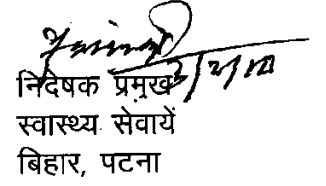 निदेषक प्रमुख
स्वास्थ्य सेवायें
बिहार, पटना